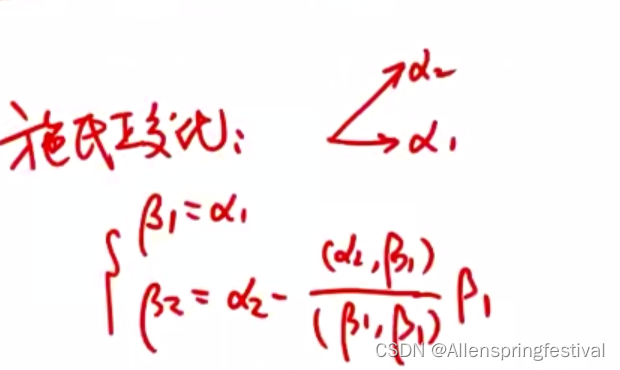 α₂
施氏正交化：
α₁
β₁=α₁
β₂=α₂-(α₂,β₁)/(β₁,β₁)β₁
CSDN @Allenspringfestival